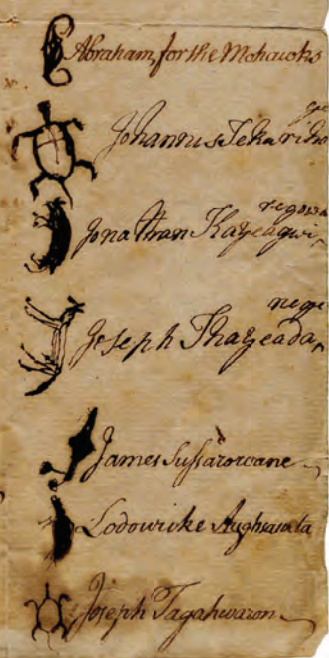 Abraham, for the Mohawks
Johannis Tekariho
ge
Jonathan Kayeagwi
regowa
Joseph Thayeada
nege
James Sussarorcane
Lodowicke Aughsata
Joseph Tagahwaron